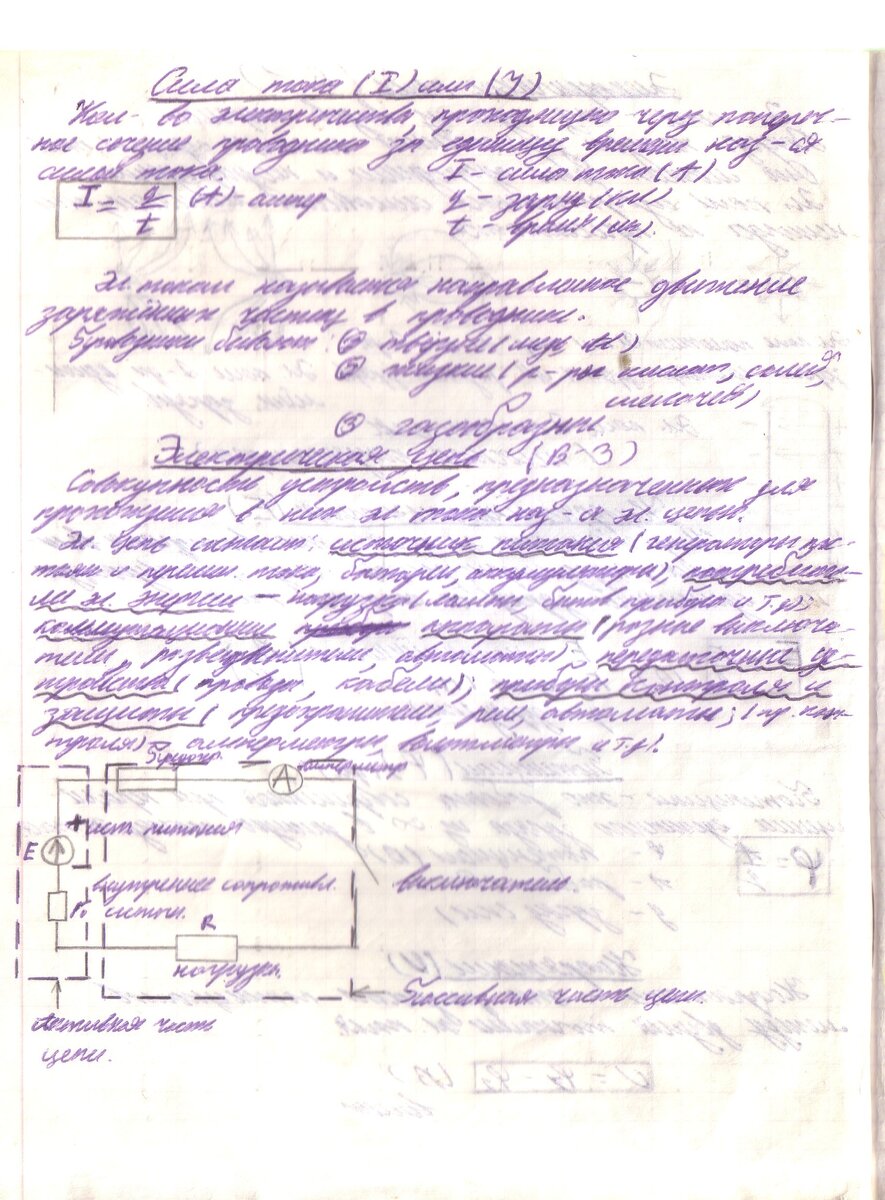 Сила тока (I) или (У)
Кол-во электричества, проходящего через попереч-
ное сечение проводника за единицу времени наз-ся
силой тока. I - сила тока (А)
I = q/t (А) - ампер q - заряд (Кл)
t - время
Эл. током называется направленное движение
заряжённых частиц в проводнике.
Проводники бывают: ① твёрдые
② жидкие (р-ры кислот, солей,
щелочей)
③ газообразные
Электрическая цепь (В-3)
Совокупность устройств, предназначенных для
прохождения в них эл тока наз-ся эл. цепью.
Эл. цепь источник питания (генераторы пос-
тоян и перемен. тока, батареи, аккумуляторы), потребите-
ли эл. энергии - нагрузка (лампы, бытов приборы и т.д.);
коммутационная аппаратура (разные выключа-
тели, разъединители, автоматы); передаточные ус-
тройства (провода, кабели); приборы контроля и
защиты (предохранители, реле, автоматы; (пр. кон-
троля) - амперметры, вольтметры и т.д.).
Предохр. А амперметр
+ ист. питания
E
внутреннее сопротивл. выключатель
r₀ источн.
R
нагрузка
Пассивная часть цепи.
Активная часть
цепи.